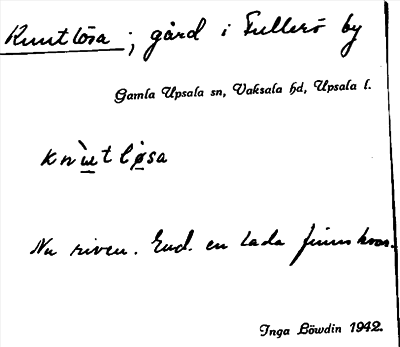 Knutlösa; gård i Fullerö by
Gamla Upsala sn, Vaksala hd, Upsala l.
knùtlø̀sa
Nu riven. End. en lada finns kvar.
Inga Löwdin 1942.